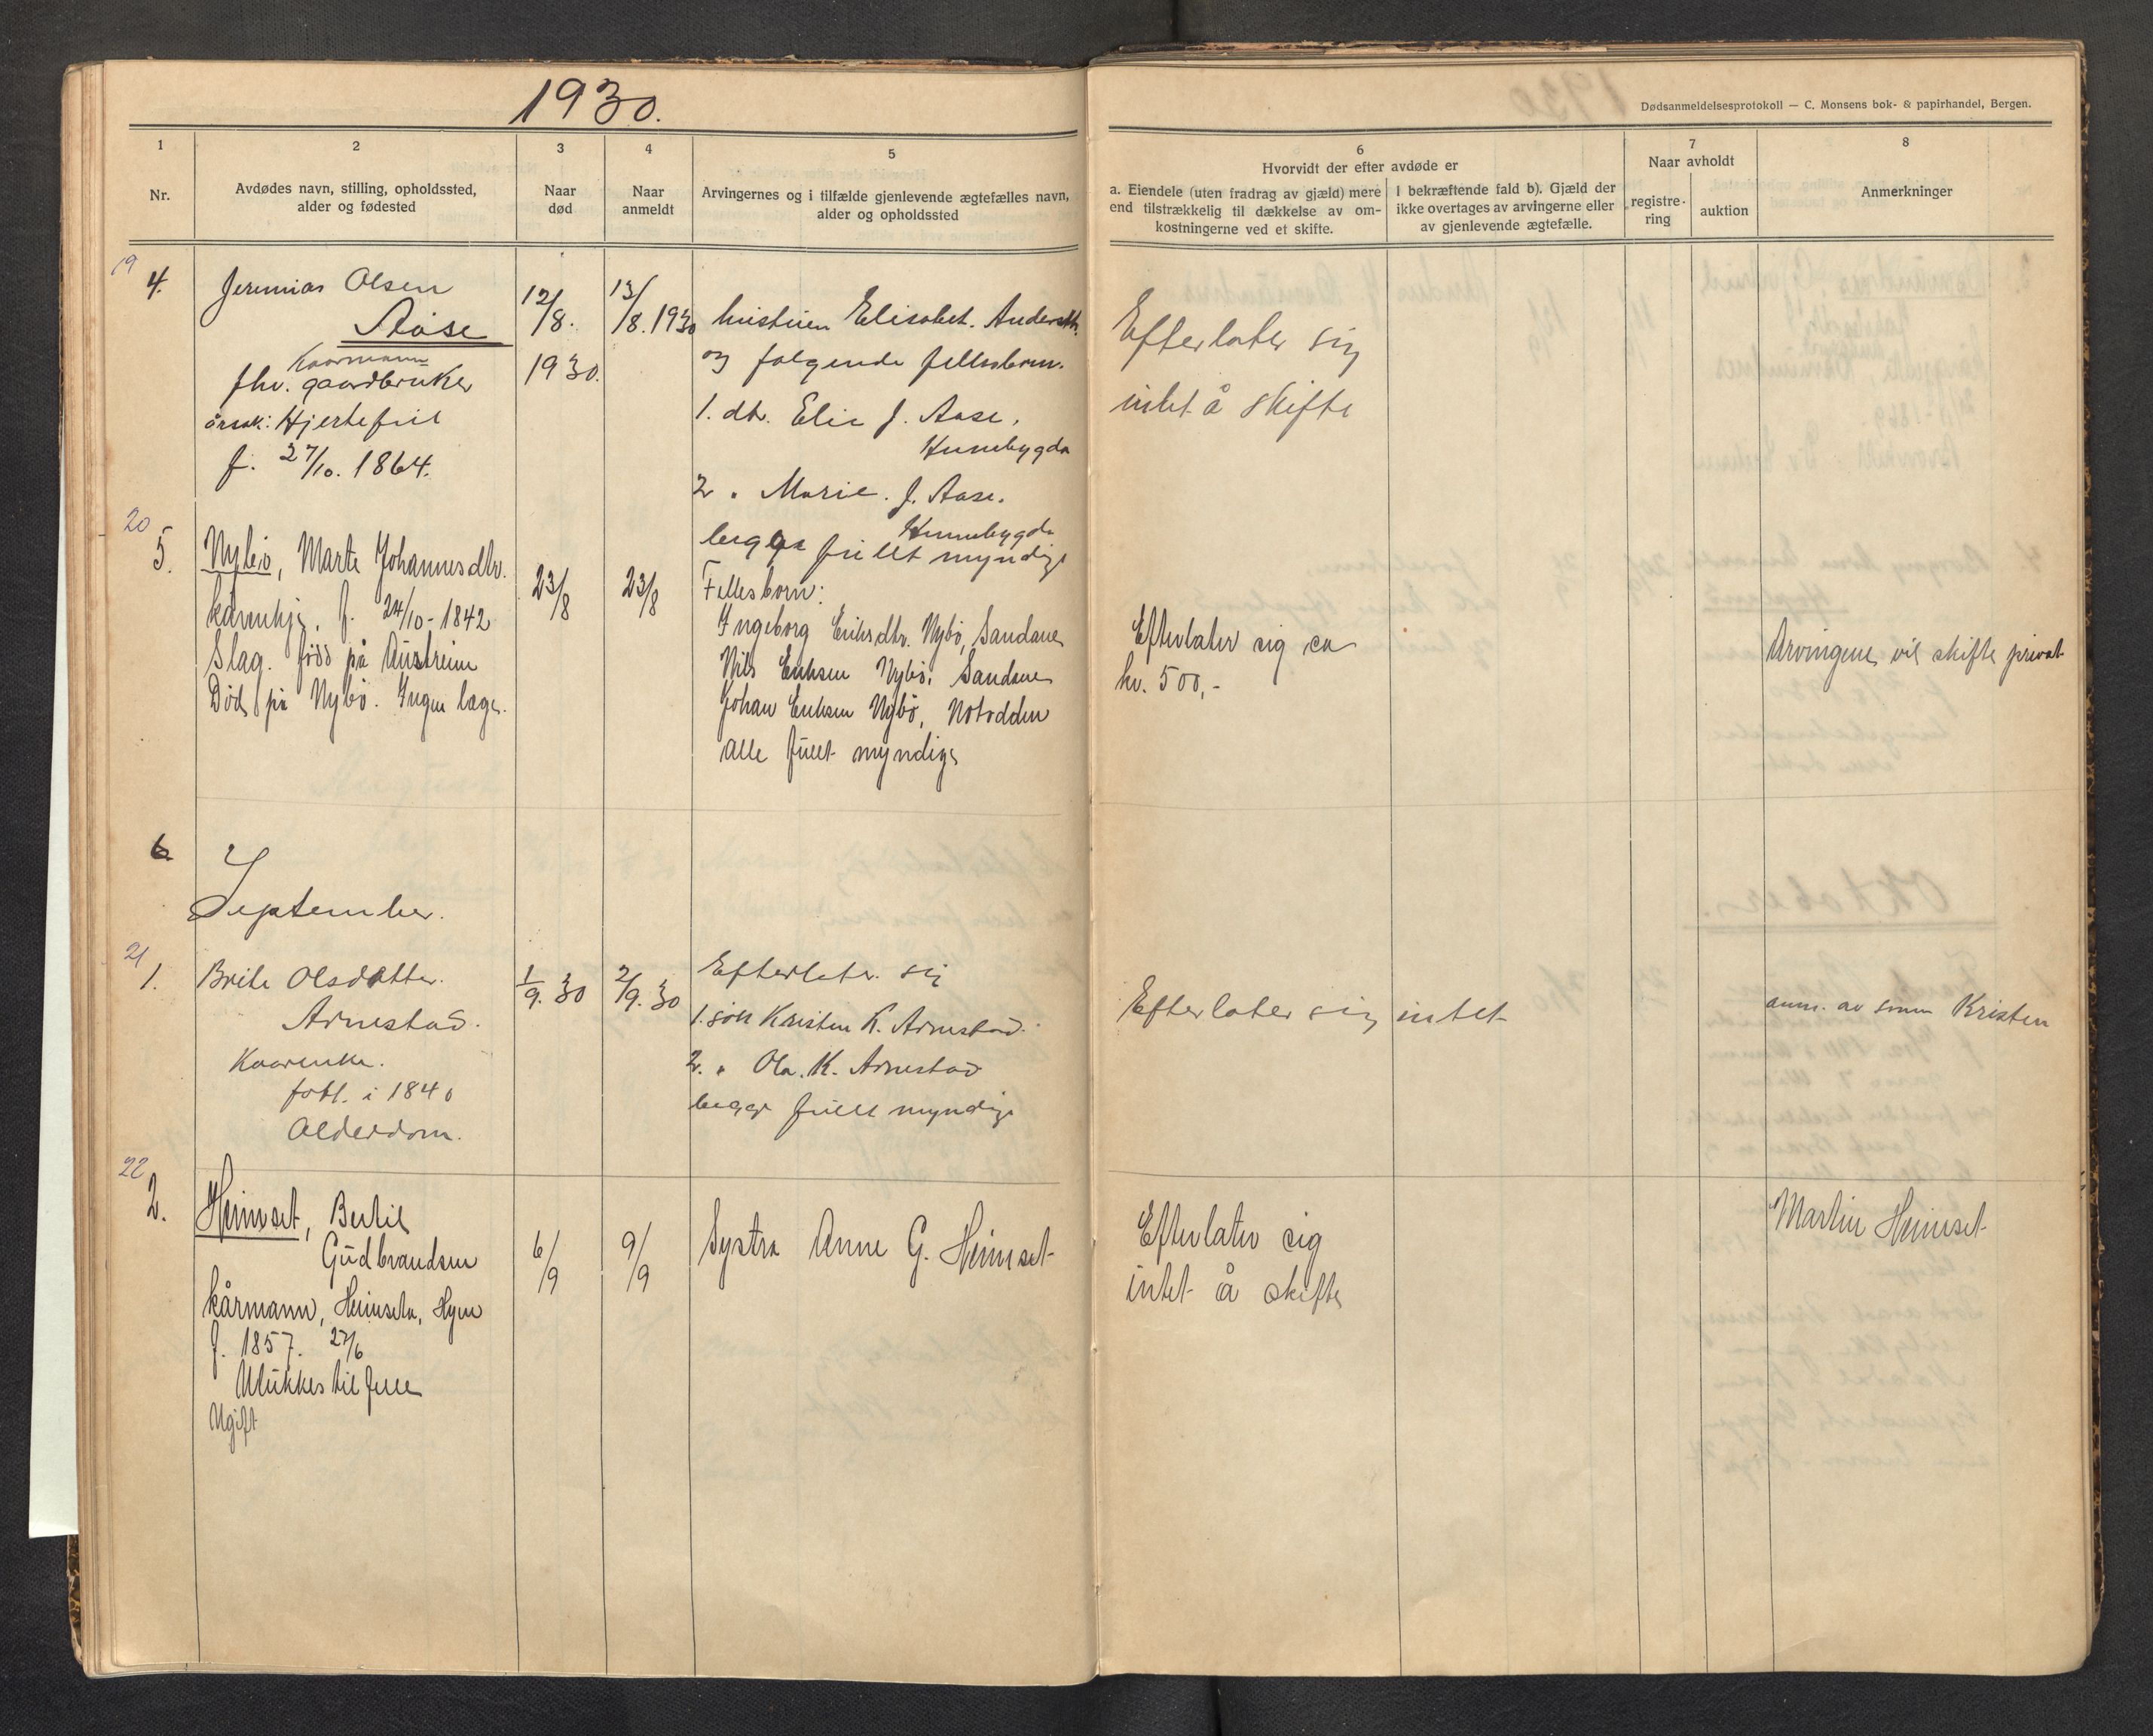 1930.
Dødsanmeldelsesprotokoll — C. Monsens bok- & papirhandel, Bergen.
1
2
3
4
5
6
7
8
Nr.
Avdødes navn, stilling, opholdssted,
alder og fødested
Naar
død
Naar
anmeldt
Arvingernes og i tilfælde gjenlevende ægtefælles navn,
alder og opholdssted
Hvorvidt der efter avdøde er
a. Eiendele (uten fradrag av gjæld) mere
end tilstrækkelig til dækkelse av om-
kostningerne ved et skifte.
I bekræftende fald b). Gjæld der
ikke overtages av arvingerne eller
av gjenlevende ægtefælle.
Naar avholdt
registre-
ring
auktion
Anmerkninger
19
4.
Jeremias Olsen
Aase
Kaarmann
fhv. gaardbruker
årsak: Hjertefeil
f. 27/10. 1864.
12/8.
1930.
13/8. 1930
hustruen Elisabet. Andersdtr.
og følgende fellesborn.
1. dtr. Elie J. Aase,
Hunebygda
2 " Marie. J. Aase.
Hunnebygda
begge fullt myndige
Efterlater sig
intet å skifte
20
5.
Nybö, Marte Johannesdtr.
kårenkje, f. 24/10-1842
Slag. född på Austreim
Död på Nybö. Ingen læge.
23/8
23/8
Fellesborn:
Ingeborg Eriksdtr. Nybö, Sandane
Nils Eriksen Nybö, Sandane
Johan Eriksen Nybö, Notodden
alle fullt myndige
Efterlater sig ca
kr. 500,-
Arvingene vil skifte privat
6
September.
21
1.
Brite Olsdatter.
Arnestad.
Kaarenke.
födt. i 1840
Alderdom.
1/9. 30
2/9. 30
Efterlater sig
1. sön Kristen K. Arnestad.
2. " Ola. K. Arnestad
begge fullt myndige
Efterlater sig intet
anm. av sönn Kristen
22
2.
Heimset, Bertil
Gudbrandsen
kårmann, Heimseta, Hyen
f. 1857. 27/6
Ulukkestilfelle
Ugift
6/9
9/9
Systra Anne G. Heimset
Efterlater sig
intet å skifte
Martin Heimset